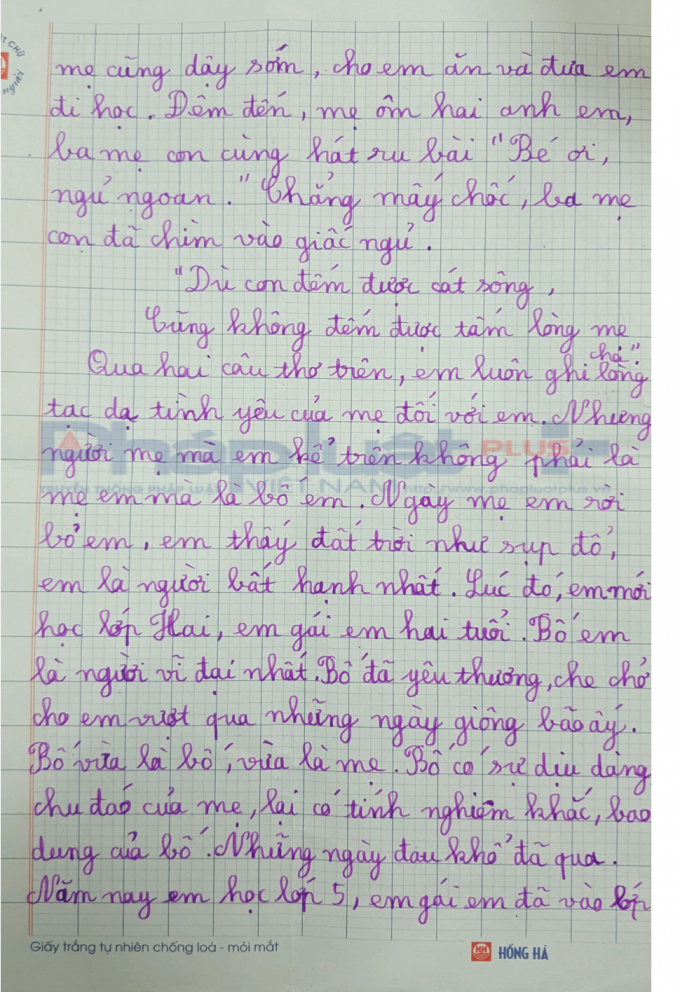 CHỮ
người
mẹ cũng dậy sớm, cho em ăn và đưa em
đi học. Đêm đến, mẹ ôm hai anh em,
ba mẹ con cùng hát ru bài "Bé ơi,
ngủ ngoan." Chẳng mấy chốc, ba mẹ
con đã chìm vào giấc ngủ.
"Dù con đếm được cát sông,
Cũng không đếm được tấm lòng mẹ
cha."
Qua hai câu thơ trên, em luôn ghi lòng
tạc dạ tình yêu của mẹ đối với em. Nhưng
người mẹ mà em kể trên không phải là
mẹ em mà là bố em. Ngày mẹ em rời
bỏ em, em thấy đất trời như sụp đổ,
em là người bất hạnh nhất. Lúc đó, em mới
học lớp Hai, em gái em hai tuổi. Bố em
là người vĩ đại nhất. Bố đã yêu thương, che chở
cho em vượt qua những ngày giông bão ấy.
Bố vừa là bố, vừa là mẹ. Bố có sự dịu dàng
chu đáo của mẹ, lại có tính nghiêm khắc, bao
dung của bố. Những ngày đau khổ đã qua.
Năm nay em học lớp 5, em gái em đã vào lớp
Pháp luật PLUS
VIỆT NAM
Giấy trắng tự nhiên chống loá - mỏi mắt
HH HỒNG HÀ